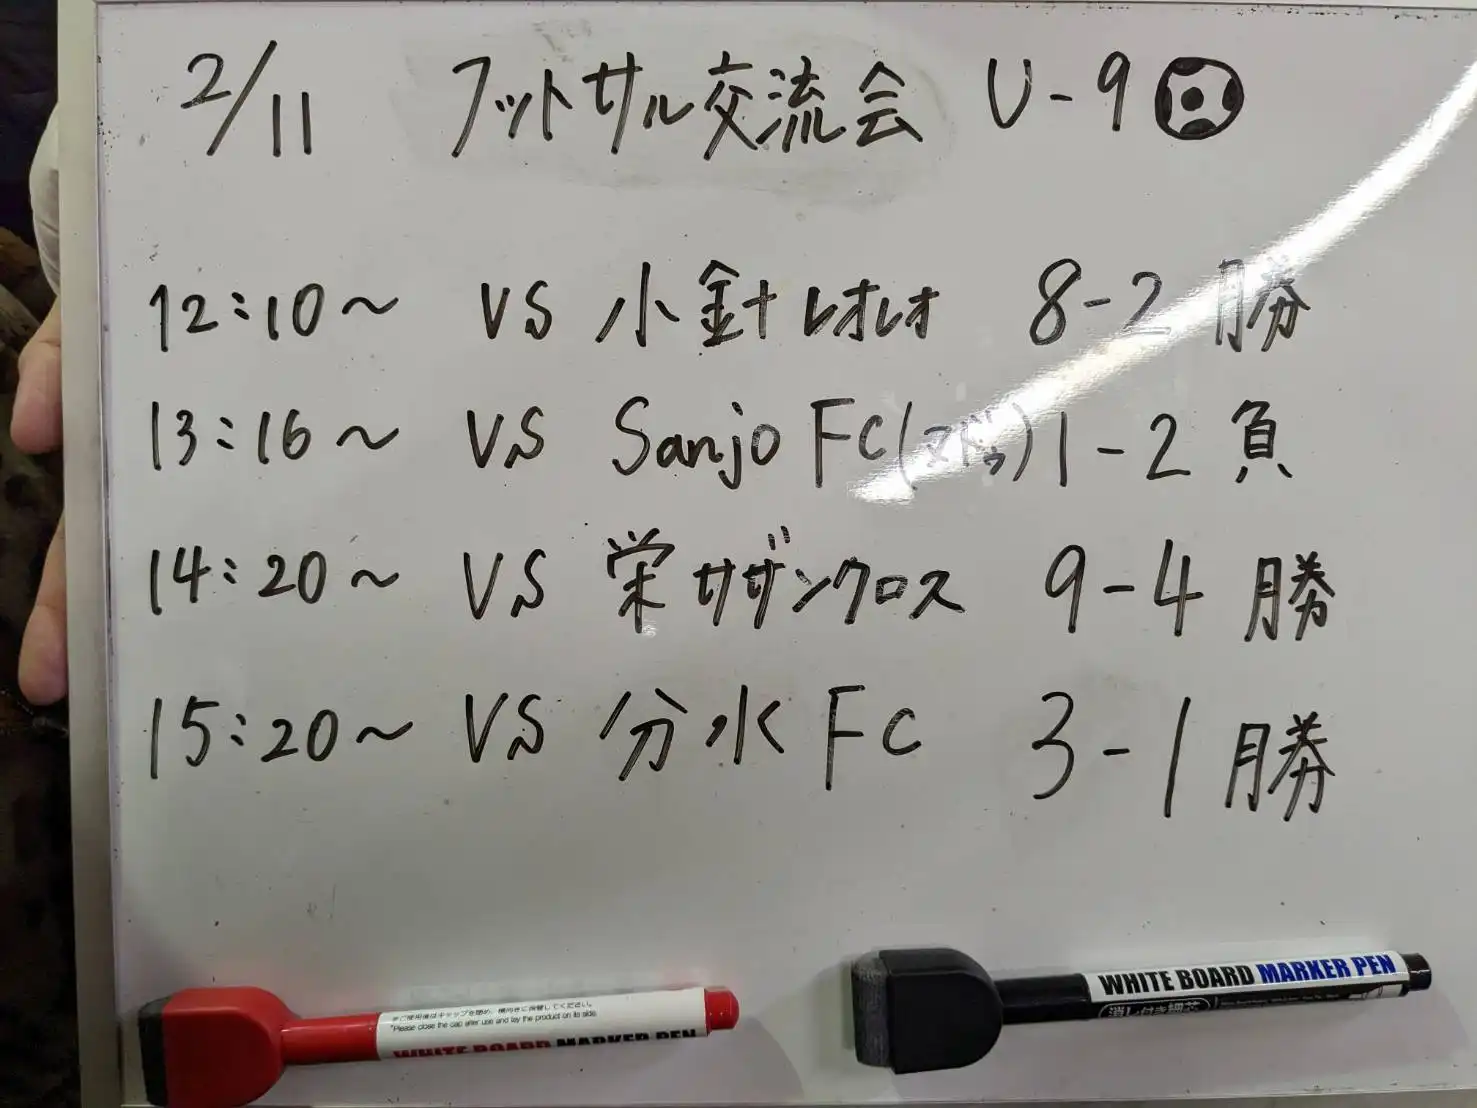 2/11 フットサル交流会 U-9
12:10~ VS 小針レオレオ 8-2 勝
13:16~ VS Sanjo FC( ) 1-2 負
14:20~ VS 栄サザンクロス 9-4 勝
15:20~ VS 分水FC 3-1 勝
※ご使用後はキャップを閉め、横向きに保管してください。
*Please close the cap after use and lay the product on its side.
WHITE BOARD MARKER PEN
WHITE BOARD MARKER PEN
消し付き細芯